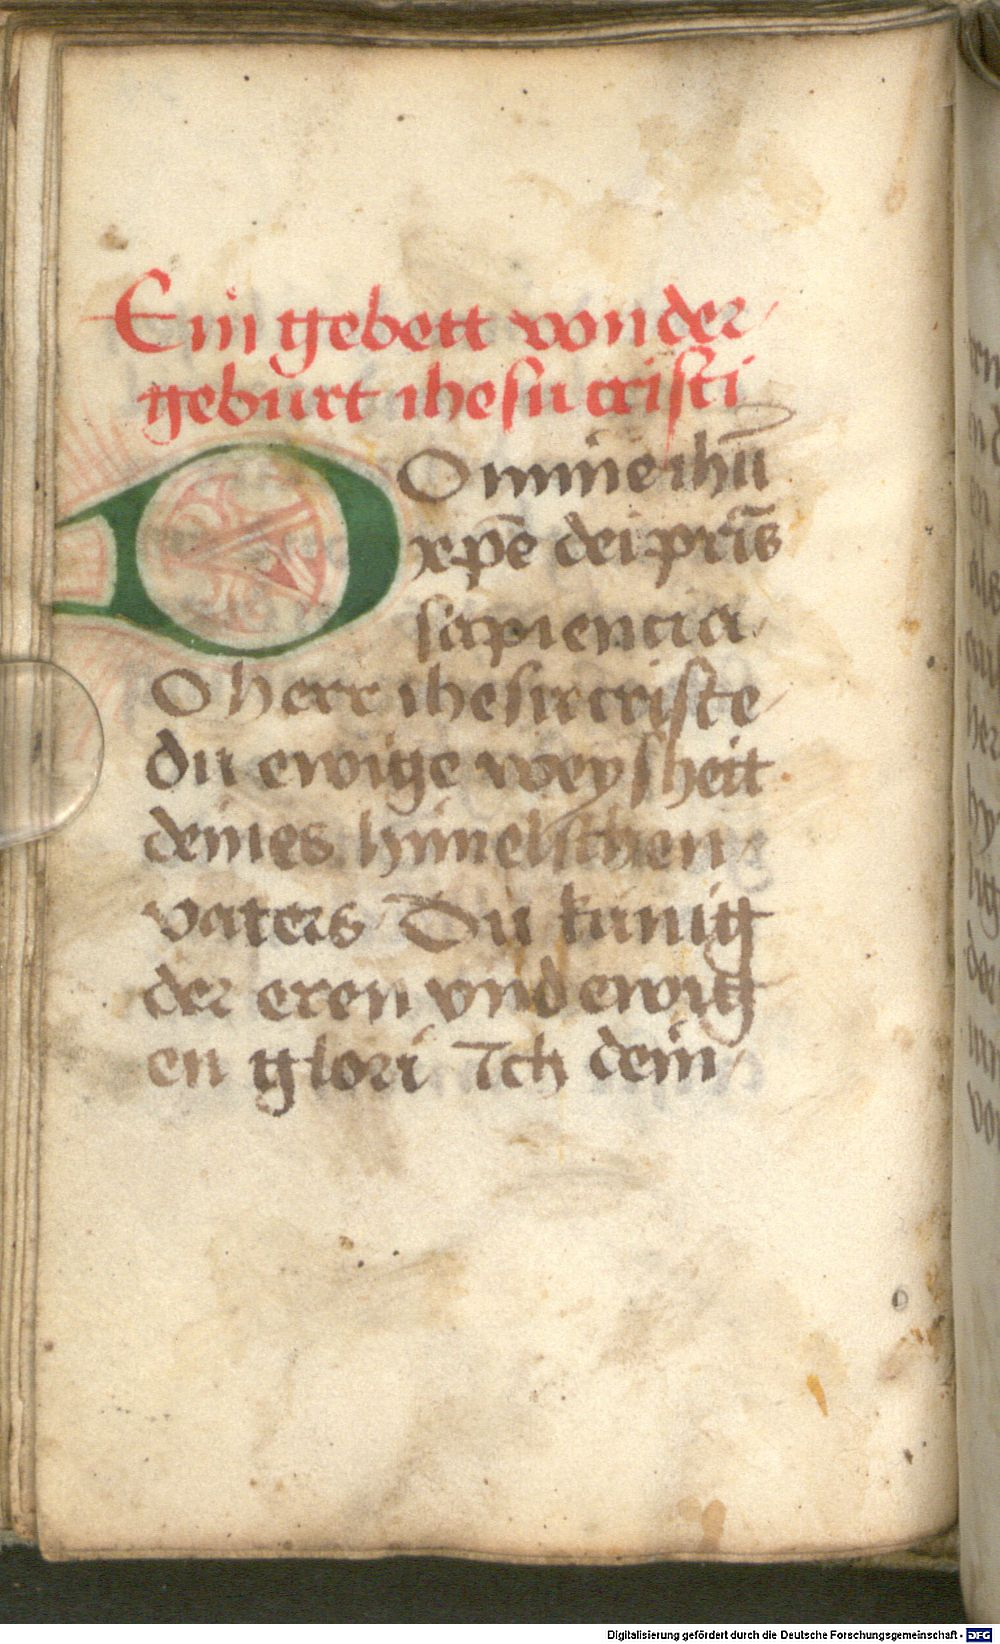 Ein gebett von der
geburt ihesu cristi
DOmine ihū
xp̄e dei pr̄is
sapiencia
O herr ihesu criste
du ewige weysheit
deines himelschen
vaters Du kunig
der eren vnd ewig
en glori Ich dein
Digitalisierung gefördert durch die Deutsche Forschungsgemeinschaft - DFG